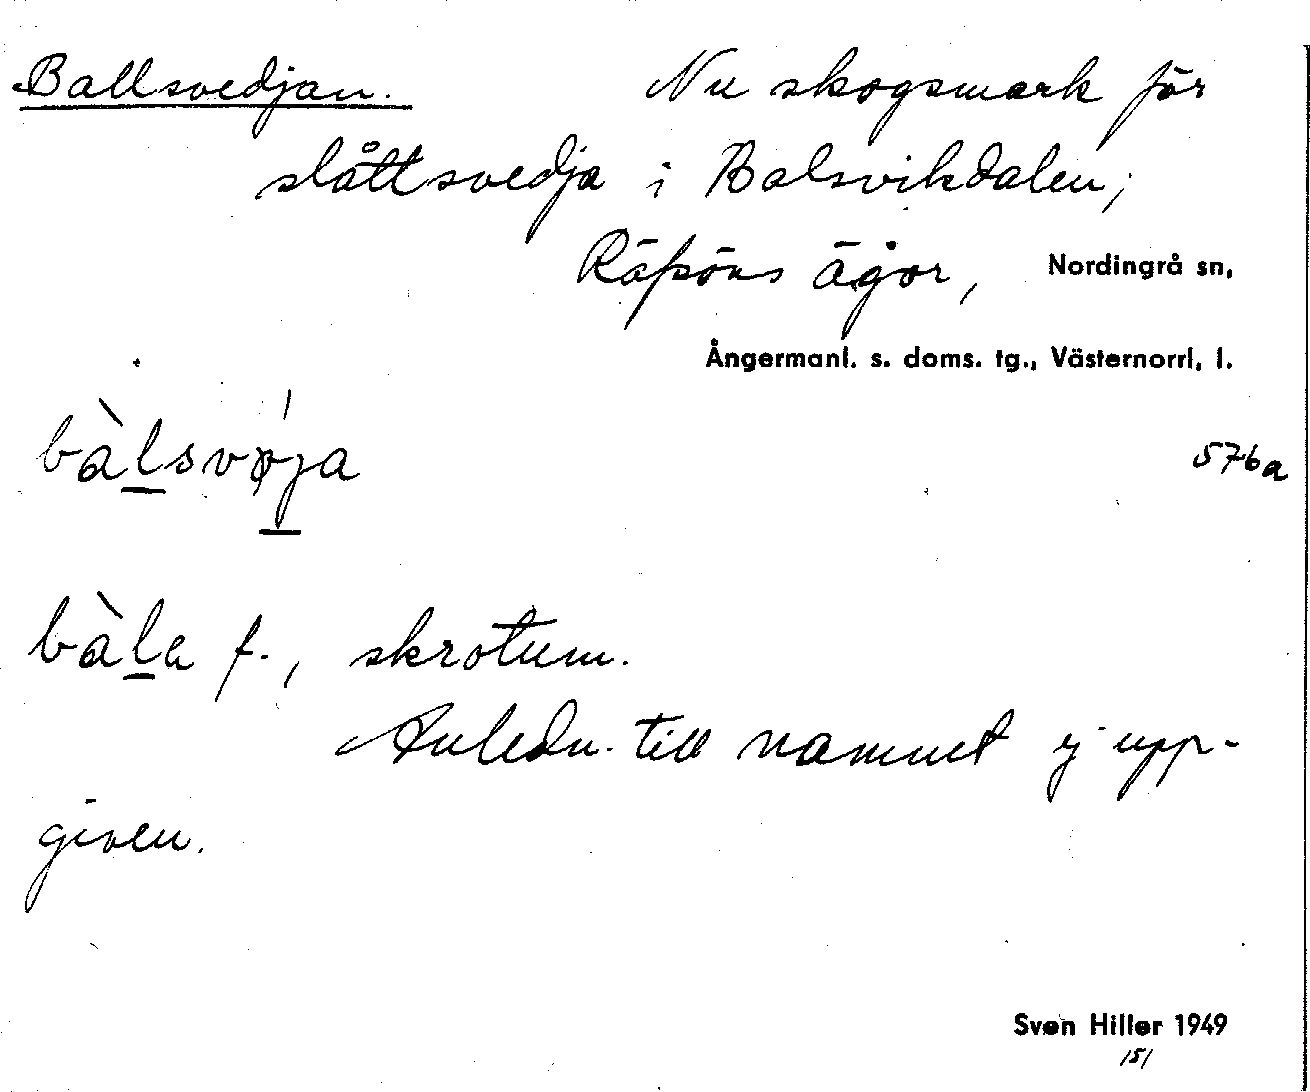 Ballsvedjan. Nu skogsmark för
slåttsvedja i Balsvikdalen;
Räpöns ägor, Nordingrå sn,
Ångermanl. s. doms. tg., Västernorrl. l.
bàlsvøja 576a
bàla f., skrotum.
Anledn. till namnet ej upp-
given.
Sven Hiller 1949
151